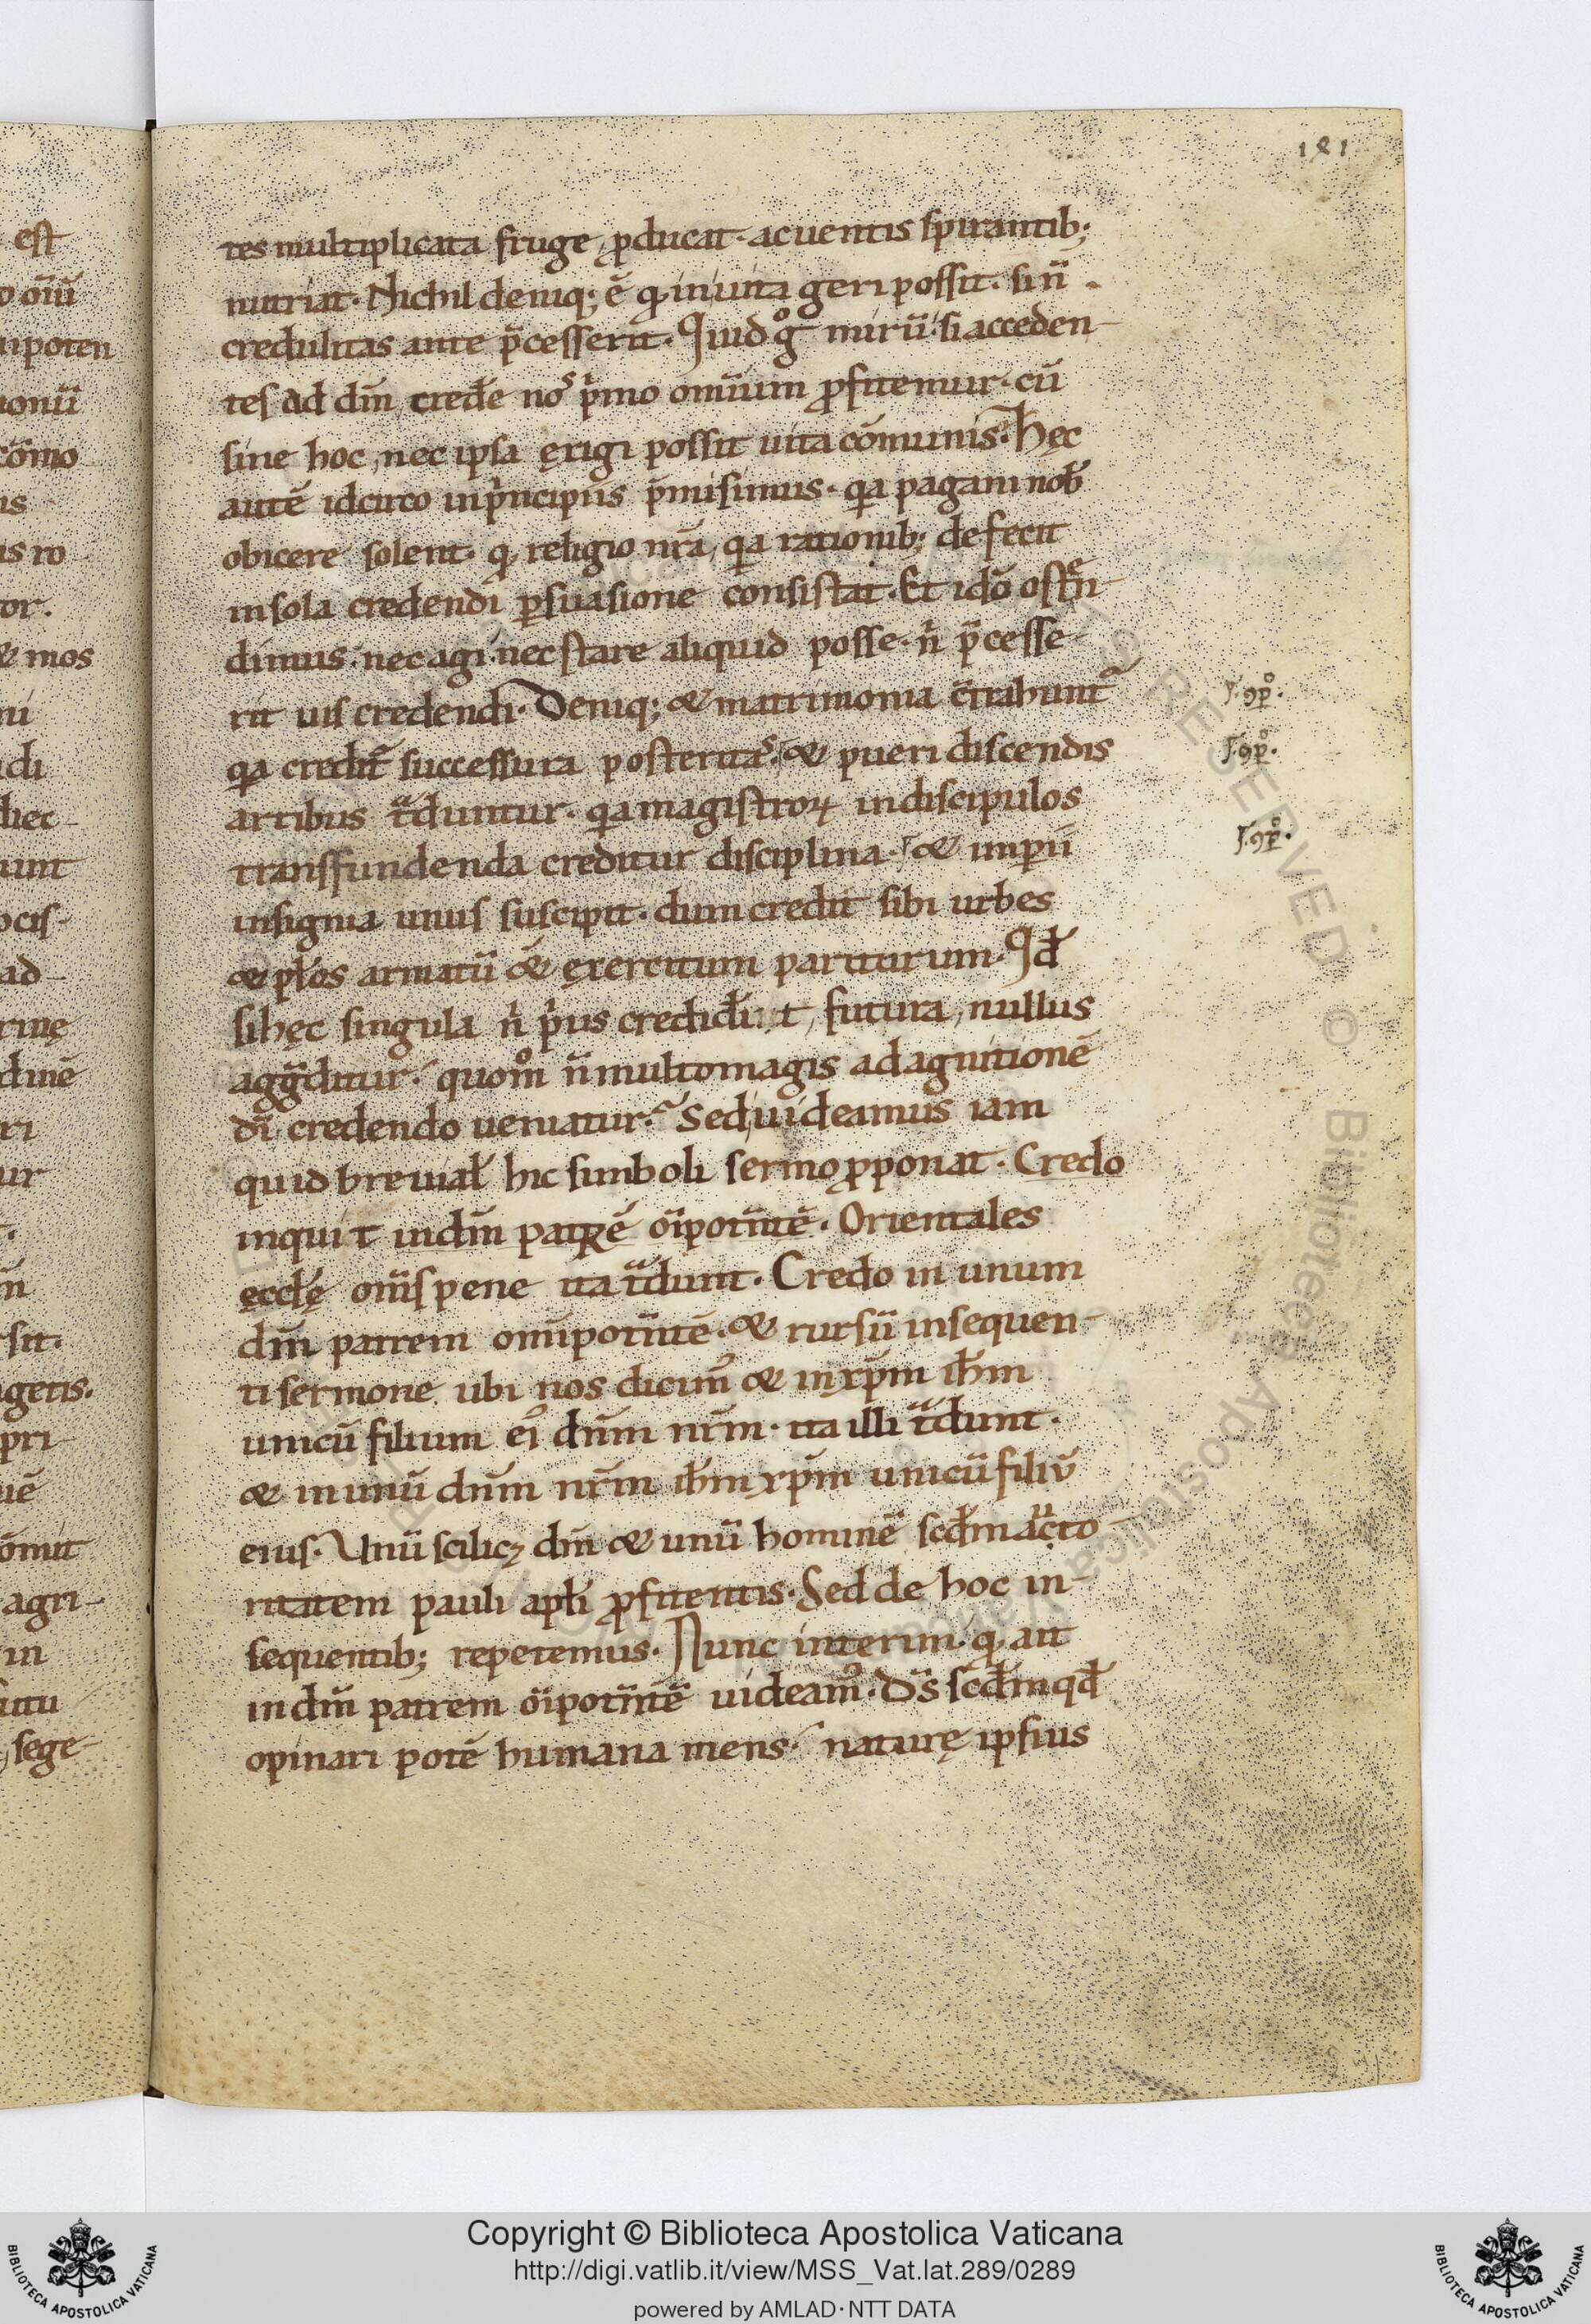 121
tes multiplicata fruge, ꝓducat. ac uentis spirantib;
nutriat. Nichil deniq; ē qđ in uita geri possit. si n̄
credulitas ante p̄cesserit. Quid gͦ mirū si acceden-
tes ad dm̄ credeɼe nos p̍mo omnium ꝓfitemur. cū
sine hoc, nec ipsa ęrigi possit uita cōmunis. Hęc
autē idcirco in p̍ncipiis p̄misimus. qa pagani nob̄
obicere solent. qđ religio nr̄a, qa rationib; defecit
in sola credendi ꝑsuasione consistat. Et idō osten-
dimus. nec agi. nec stare aliquid posse. n̍ p̄cesse-
rit uis credendi. Deniq; & matrimonia ꝯtrahunt᷑
qa credit᷑ successura posteritas. & pueri discendis
artibus tͣduntur. qa magistroꝝ in discipulos
transfundenda creditur disciplina. & imꝑii
insignia unus suscipit. dum credit sibi urbes
& pł̄os armatū & ęxercitum pariturum. Qđ
si hęc singula n̍ p̍us crediderit, futura, nullus
aggͣditur. quom̊ n̄ multo magis ad agnitionē
dī credendo ueniatur. Sed uideamus iam
quid breuiat᷑ hic simboli sermo ꝓponat. Credo
inquit in dm̄ patrē oīpotn̄tē. Orientales
ęccłę om̄s pene ita tͣdunt. Credo in unum
dm̄ patrem omīpotn̄tē. & rursū in sequen-
ti sermone. ubi nos dicim᷒ & in xp̄m ih̄m
unicū filium ei᷒ dn̄m nr̄m. ita illi tͣdunt.
& in unū dn̄m nr̄m ih̄m xp̄m unicū filiū
eius. Unū scilicꝫ dm̄ & unū hominē scd̄m aucto-
ritatem pauli apł̄i ꝓfitentis. Sed de hoc in
sequentib; repetemus. Nunc interim. qđ ait
in dm̄ patrem oīpotn̄tē uideam᷒. Ds̄ scd̄m qđ
opinari potē humana mens. naturę ipsius
Copyright © Biblioteca Apostolica Vaticana
http://digi.vatlib.it/view/MSS_Vat.lat.289/0289
powered by AMLAD·NTT DATA
BIBLIOTECA APOSTOLICA VATICANA
BIBLIOTECA APOSTOLICA VATICANA